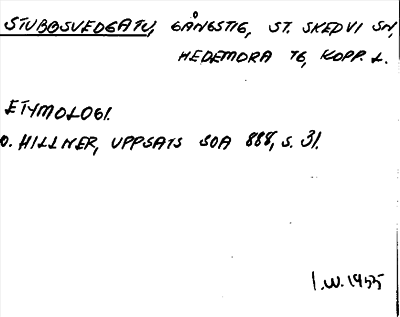 STUBOSVEDGATU, GÅNGSTIG, ST. SKEDVI SN,
HEDEMORA TG, KOPP. L.
ETYMOLOGI.
O. HILLNER, UPPSATS SOA 888, S. 31.
I.W. 1955